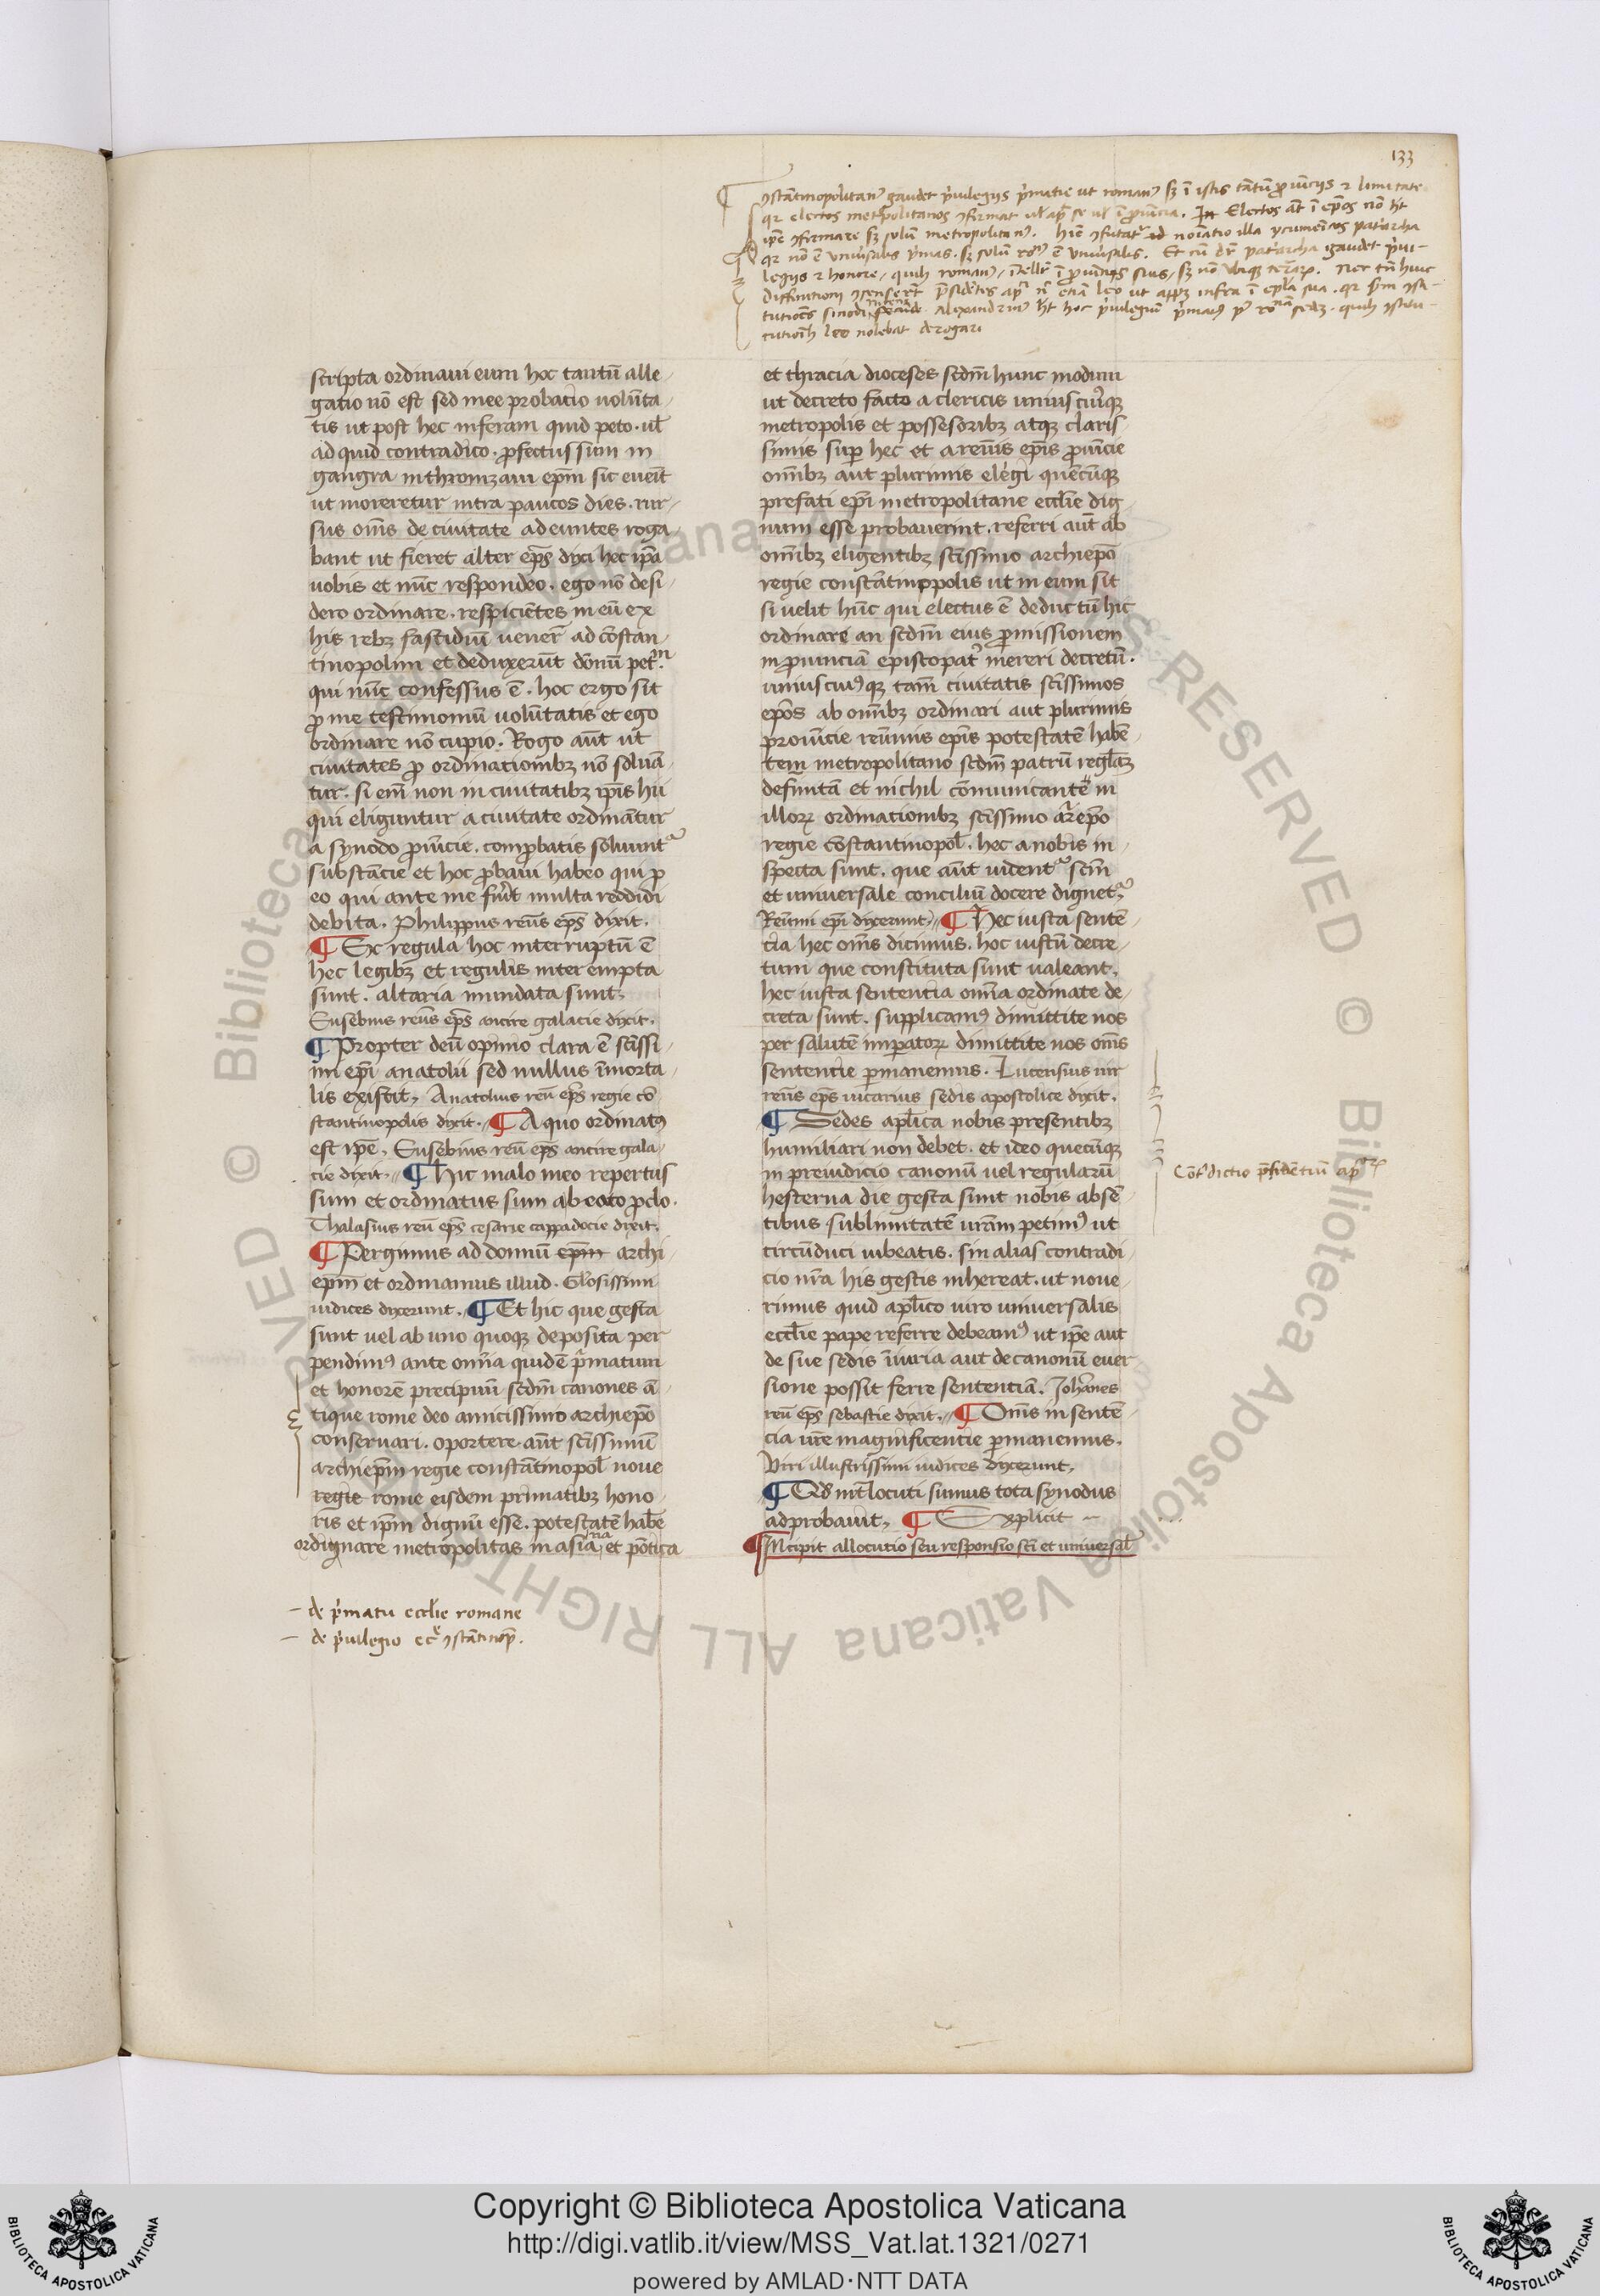 133
ꝯstãtinopolitanꝰ gaudet pͥuilegiis pͥmatie ut romanꝰ sꝫ ĩ istis tãtũ ꝓuĩciis ⁊ limitate
qꝛ electos metropolitanos ꝯfirmat ul̃ apᷣ se ul̃ ĩ ꝓuĩcia. Electos aũt ĩ ep̃os nõ hꝫ
ip̃e ꝯfirmare sꝫ solũ metropolitanꝰ. Hic̃ ꝯfutatᷣ noĩatio illa ycumeĩcos patᷣarcha
qꝛ nõ ẽ uniũsalis pͥmas. sꝫ solũ roꝰ ẽ uniũsalis. Et cũ dr̃ patᷣarcha gaudet pͥui-
legiis ⁊ honore, quib̃ romanꝰ, ĩtell̃r ĩ ꝓuĩciis suis, sꝫ nõ ubiqꝫ terraꝝ. Nec tñ huic
diffinitioni ꝯsenser̃t p̃sidẽtes ap̃ nͨ etiã leo ut appꝫ infra ĩ ep̃la sua. qꝛ ẜm ꝯsti-
tutiões sinodi Alexandrinꝰ hꝫ hoc pͥuilegiũ pͥmatꝰ pꝰ roᵐᵃⁿᵃ̃ sedẽ. quib̃ ꝯstitu-
tutiõib̃ leo nolebat derogari
scripta ordinaui eum hoc tantũ alle-
gatio nõ est sed mee probatio uolũta-
tis ut post hec inferam quid peto. ul̃
ad quid contradico. ꝓfectus sum in
gangra inthronizaui ep̃m sic eueĩt
ut moreretur intra paucos dies. rur-
sus om̃s de ciuitate adeuntes roga-
bant ut fieret alter ep̃s dixi hec ip̃a
uobis et nũc respondeo. ego nõ desi-
dero ordinare. respiciẽtes in eũ ex
his rebꝫ fastidiũ uener̃ ad cõstan-
tinopolim et deduxerũt dõnũ pet̃ᵐ
qui nũc confessus ẽ. hoc ergo sit
ꝓ me testimoniũ uolũtatis et ego
ordinare nõ cupio. Rogo aũt ut
ciuitates ꝓ ordinationibꝫ nõ soluã-
tur. si em̃ non in ciuitatibꝫ ip̃is hii
qui eliguntur a ciuitate ordinãtur
a synodo ꝓuĩcie. comprobatis soluuntᷣ
substãcie et hoc ꝓbaui habeo qui ꝑ
eo qui ante me fuĩt multa reddidi
debita. Philippus reũs ep̃s dixit.
¶ Ex regula hoc interruptũ ẽ
hec legibꝫ et regulis interempta
sunt. altaria mundata sunt.
Eusebius reũs ep̃s ancire galacie dixit.
¶ Propter deũ opinio clara ẽ sc̃issi-
mi ep̃i anatolii sed nullus ĩmorta-
lis existit. Anatolius reũ ep̃s regie cõ-
stantinopolis dixit. ¶ A quo ordinatꝰ
est ip̃e. Eusebius reũ ep̃s ancire gala-
cie dixit. ¶ Hic malo meo repertus
sum et ordinatus sum ab eoto ꝓclo.
Thalasius reũ ep̃s cesarie cappadocie dixit.
¶ Pergimus ad domnũ ep̃m archi-
ep̃m et ordinamus illud. Glosissimi
iudices dixerunt. ¶ Et hic que gesta
sunt uel ab uno quoqꝫ deposita per-
pendimꝰ ante om̃ia quidẽ pͥmatum
et honorẽ precipuũ sẽdm̃ canones ã-
tique rome deo amicissimo archiep̃o
conseruari. oportere aũt sc̃issimũ
archiep̃m regie constãtinopol̃ noue
regie rome eisdem primatibꝫ hono-
ris et ip̃m dignũ esse. potestatẽ habẽ
ordignare metropolitas in asiaⁿᵃ et põtica
et thracia dioceses sedm̃ hunc modum
ut decreto facto a clericis uniuscuiꝰqꝫ
metropolis et possesoribꝫ atqꝫ claris-
simis suꝑ hec et a reuẽis ep̃is ꝓuĩcie
om̃ibꝫ aut plurimis elegi quẽcũqꝫ
prefati ep̃i metropolitane eccl̃ie dig-
num esse probauerint. referri aũt ab
om̃ibꝫ eligentibꝫ sc̃issimo archiep̃o
regie constãtinopolis ut in eum sit
si uelit hũc qui electus ẽ deductũ hic
ordinare an sedm̃ eius ꝑmissionem
in ꝓuinciã episcopatꝰ mereri decretũ.
uniuscuiꝰqꝫ tam̃ ciuitatis sc̃issimos
ep̃os ab om̃ibꝫ ordinari aut plurimis
prouĩcie reũmis ep̃is potestatẽ habẽ-
tem metropolitano sedm̃ patrũ regl̃aꝫ
definitã et nichil cõmunicantẽ in
illoꝝ ordinationibꝫ sc̃issimo ar̃ep̃o
regie cõstantinopol̃. hec a nobis in-
specta sunt. que aũt uidentᷣ sc̃m
et uniuersale conciliũ docere dignetᷣ.
Reũmi ep̃i dixerunt. ¶ Hec iusta sentẽ-
tia hec om̃s dicimus. hoc iustũ decre-
tum que constituta sunt ualeant.
hec iusta sententia om̃ia ordinate de-
creta sunt. supplicamꝰ dimittite nos
per salutẽ imꝑatoꝝ dimittite nos om̃s
sententie ꝑmanemus. Lucensius uir
reũs ep̃s uicarius sedis apostolice dixit.
¶ Sedes apl̃ica nobis presentibꝫ
humiliari non debet. et ideo quecũqꝫ
in preiudicio canonũ uel regularũ
hesterna die gesta sunt nobis absẽ-
tibus sublimitatẽ ur̃am petimꝰ ut
circũduci iubeatis. sin alias contradi-
cio nr̃a his gestis inhereat. ut noue-
rimus quid apl̃ico uiro uniuersalis
eccl̃ie pape referre debeamꝰ ut ip̃e aut
de sue sedis ĩiuria aut de canonũ euer-
sione possit ferre sententiã. Joh̃anes
reũ ep̃s sebastie dixit. ¶ Om̃s in sentẽ-
cia ur̃e magnificentie ꝑmanemus.
Viri illustrissimi iudices dixerunt.
¶ Qd̃ int̃locuti sumus tota synodus
adprobauit. ¶ Explicit
¶ Incipit allocutio seu responsio sc̃i et uniuersal̃
Cõtͣdictio p̃sidẽtiũ apᵒˢᵗ
– de pͥmatu eccl̃ie romane
– de pͥuilegio ecͨ ꝯstãtinop̃.
© Biblioteca Apostolica Vaticana ALL RIGHTS RESERVED
BIBLIOTECA APOSTOLICA VATICANA
Copyright © Biblioteca Apostolica Vaticana
http://digi.vatlib.it/view/MSS_Vat.lat.1321/0271
powered by AMLAD·NTT DATA
BIBLIOTECA APOSTOLICA VATICANA